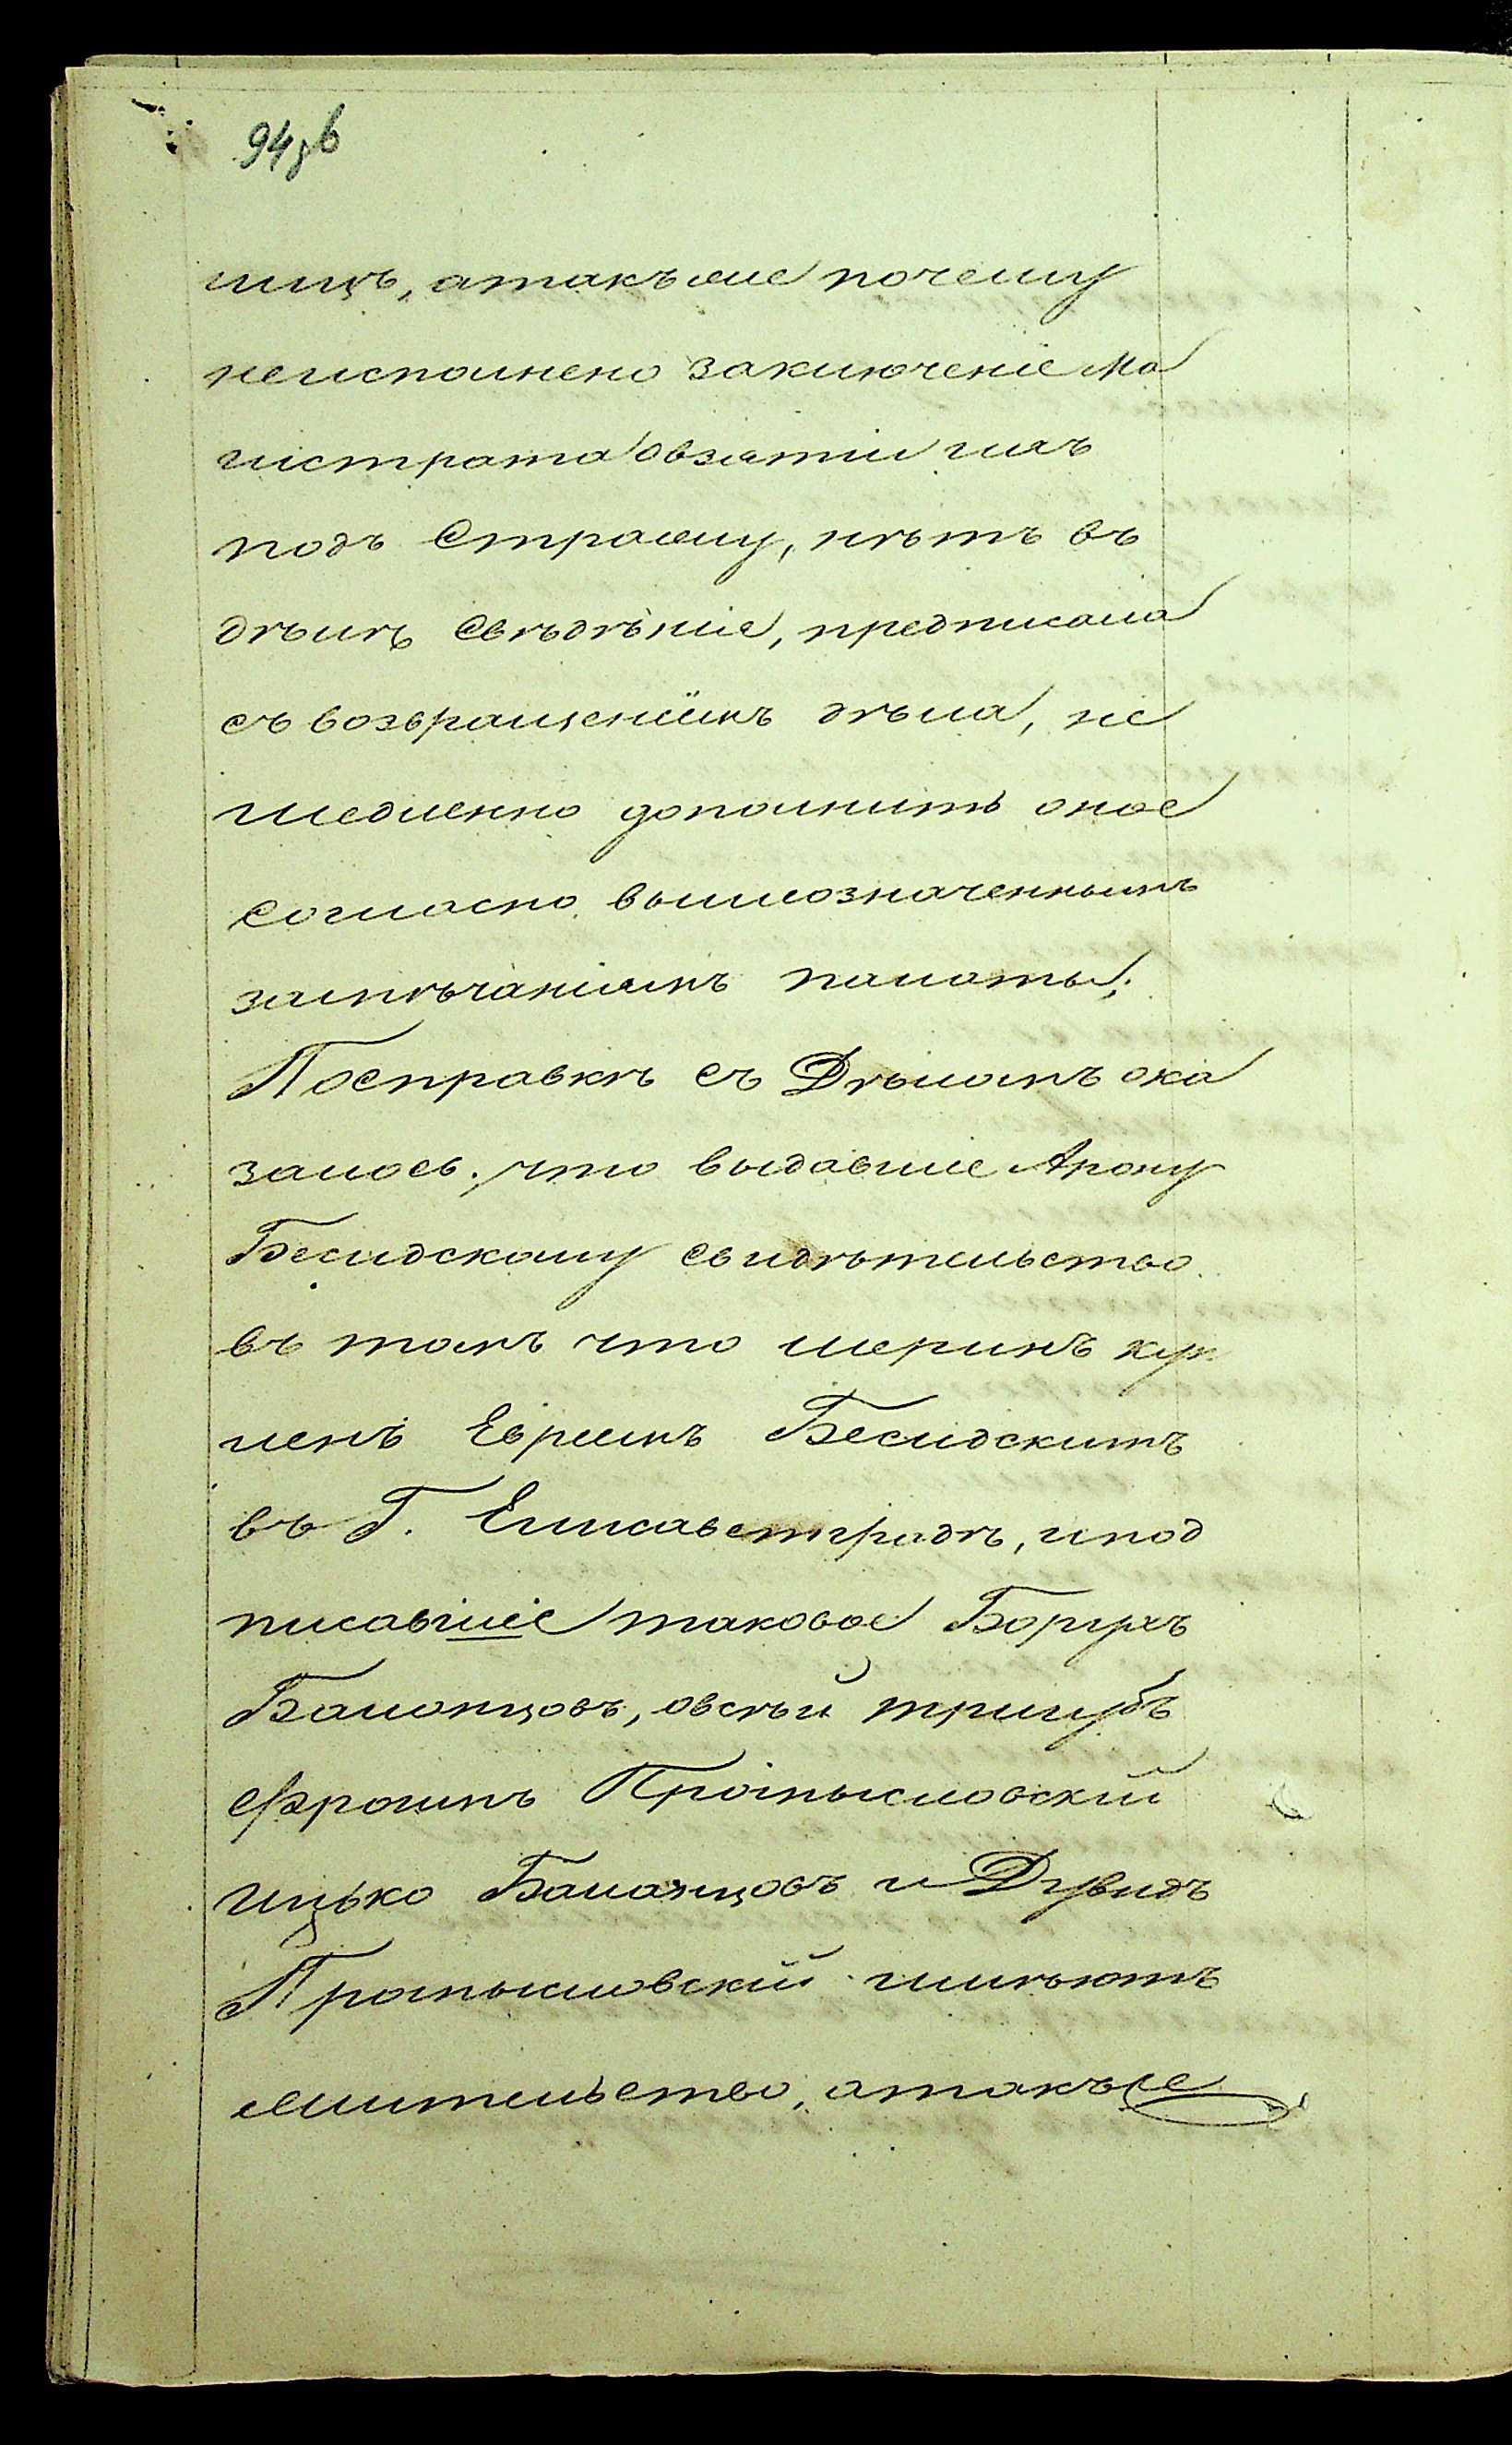 94 зв
лицъ, атакъже почему
неисполнено заключеніе Ма
гистрата овзятіи ихъ
подъ Стражу, нѣтъ въ
дѣлѣ Свѣдѣніе, предписала
съ возвращеніемъ дѣла, не
медленно дополнить оное
Согласно вышеозначеннымъ
замѣчаніямъ палаты;
Посправкѣ съ Дѣломъ ока
залось, что выдавшіе Арону
Бесидскому свидѣтельство
въ томъ что меринъ куп
ленъ Евреемъ Бесидскимъ
въ Г. Елисаветградѣ, и под
писавшіе таковое Борухъ
Баланцовъ, овсѣй тригубъ
Фроимъ Промысловскій
ицько Баланцовъ и Дувидъ
Промысловскій имѣютъ
жительство, атакъже